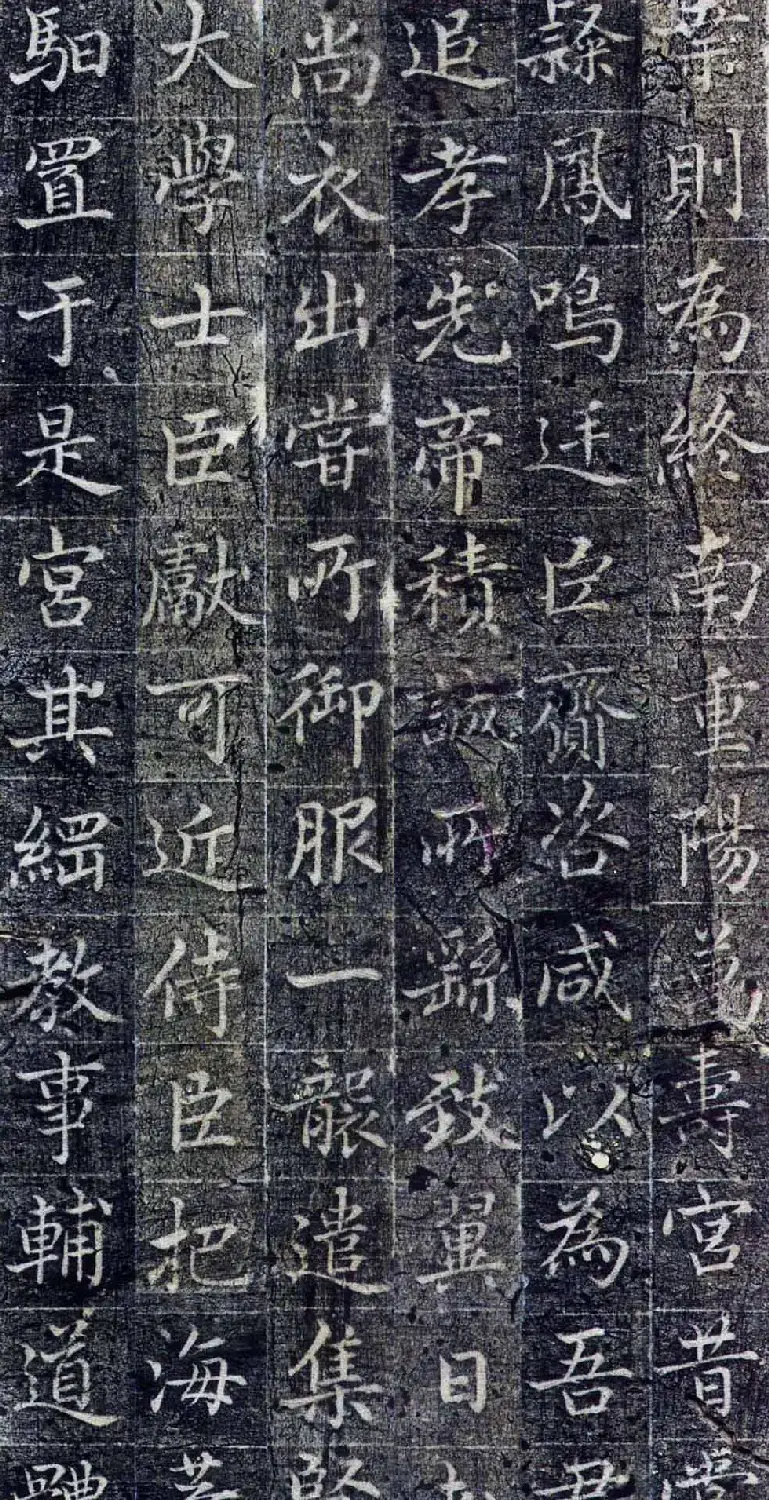 業則為終南重陽萬壽宮昔嘗
隸鳳鳴廷臣齎咨咸以為吾君
追孝先帝積誠所繇致翼日
尚衣出嘗所御服一襲遣集賢
大學士臣獻可近侍臣把海
馹置于是宮其綱教事輔道體